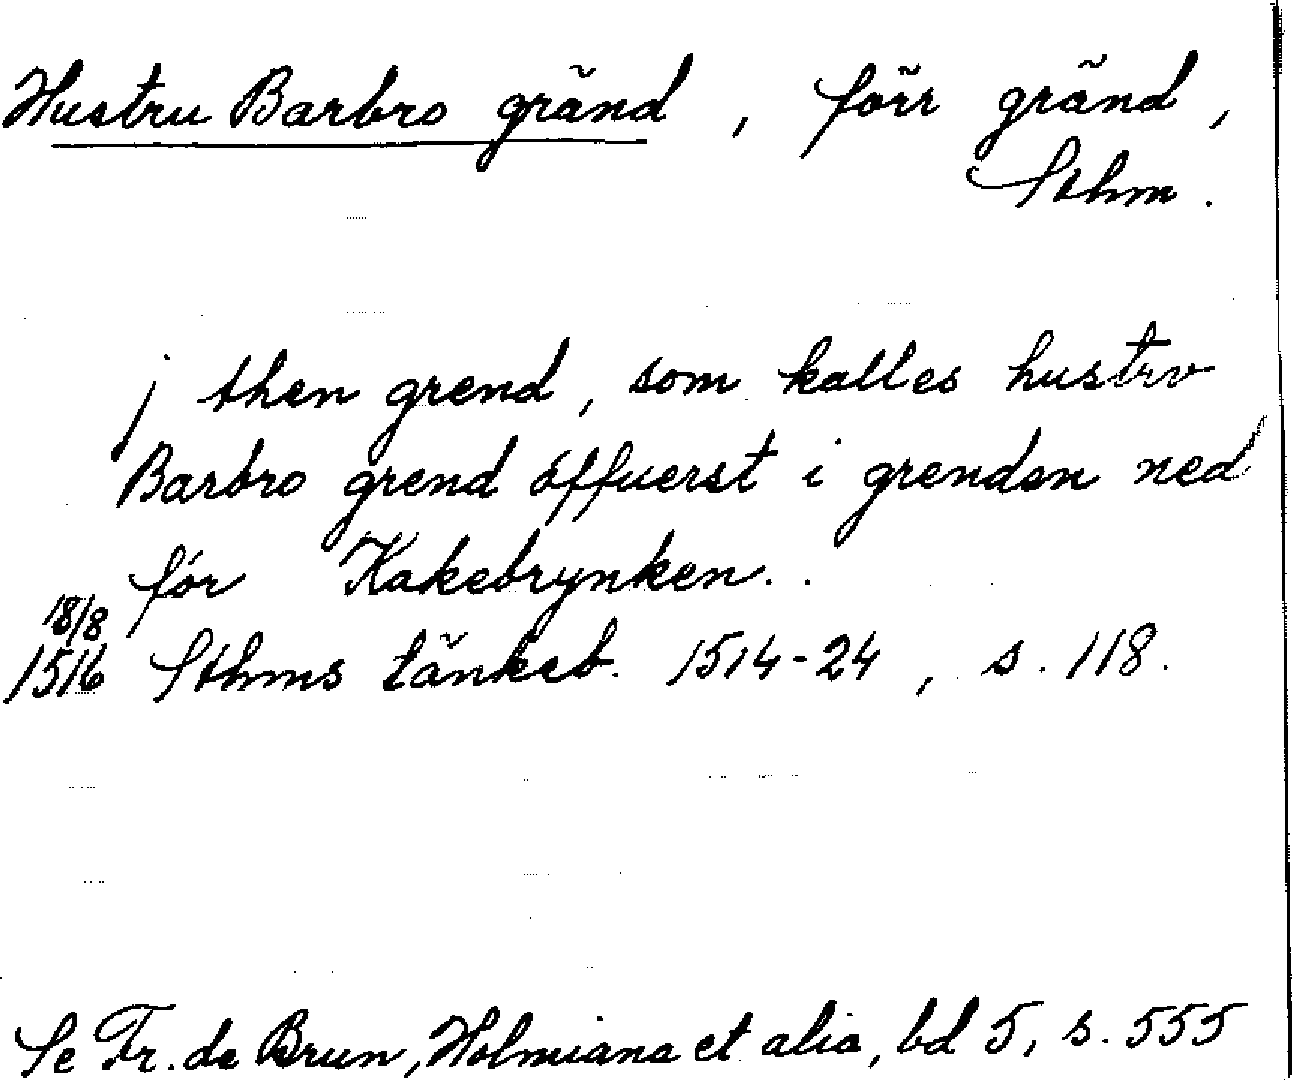 Hustru Barbro gränd, förr gränd,
Sthm.
j then grend, som kalles hustrv
Barbro grend öffuerst i grenden ned
för Kakebrynken..
18/8
1516 Sthms tänkeb. 1514-24, s. 118.
Se Fr. de Brun, Holmiana et alia, bd 5, s. 555